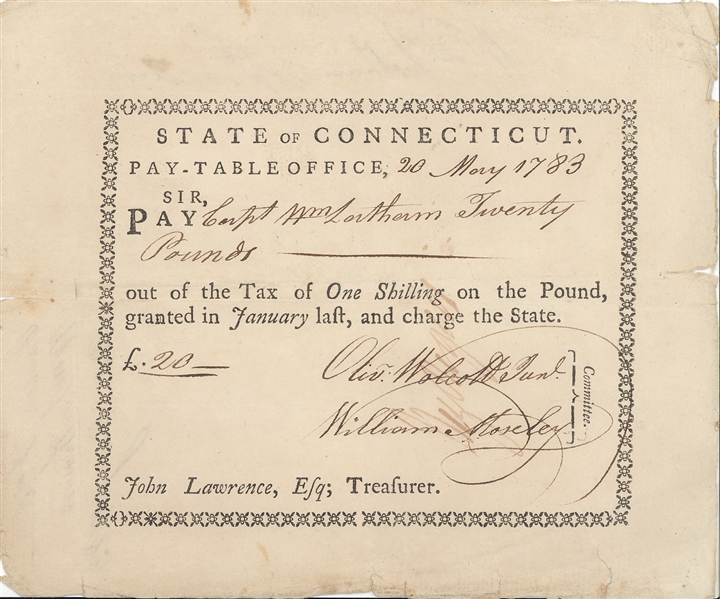 STATE OF CONNECTICUT.
PAY-TABLE OFFICE, 20 May 1783
SIR,
PAY Capt Wm Latham Twenty
Pounds
out of the Tax of One Shilling on the Pound,
granted in January laſt, and charge the State.
£. 20
Olivr. Wolcott Junr.
William Moseley
Committee.
John Lawrence, Eſq; Treaſurer.